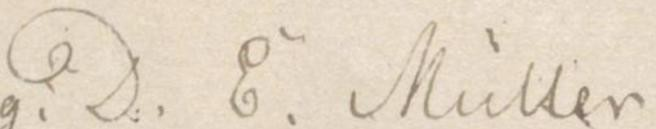 g. D. E. Müller